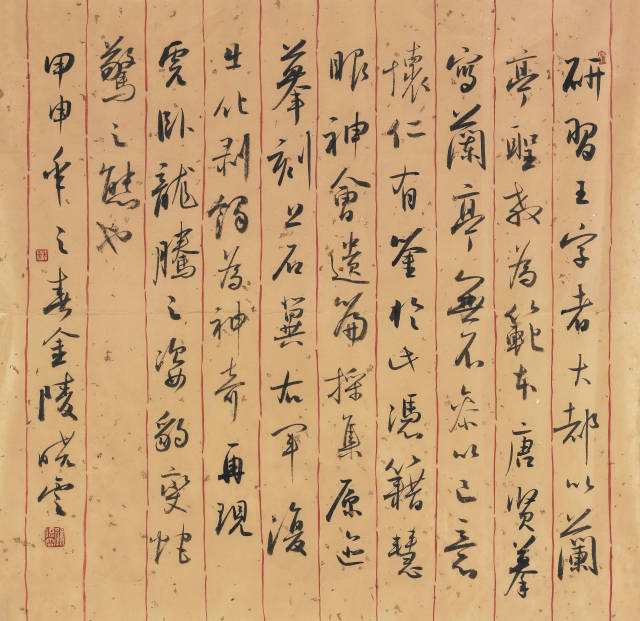 研習王字者大都以蘭
亭聖教為範本唐賢摹
寫蘭亭無不參以己意
懷仁有鉴於此憑籍慧
眼神會遺篇採集原迹
摹刻上石冀右軍復
出化剥蝕為神奇再現
虎卧龍騰之姿豹變蛇
驚之態也
甲申年之春金陵晓雲